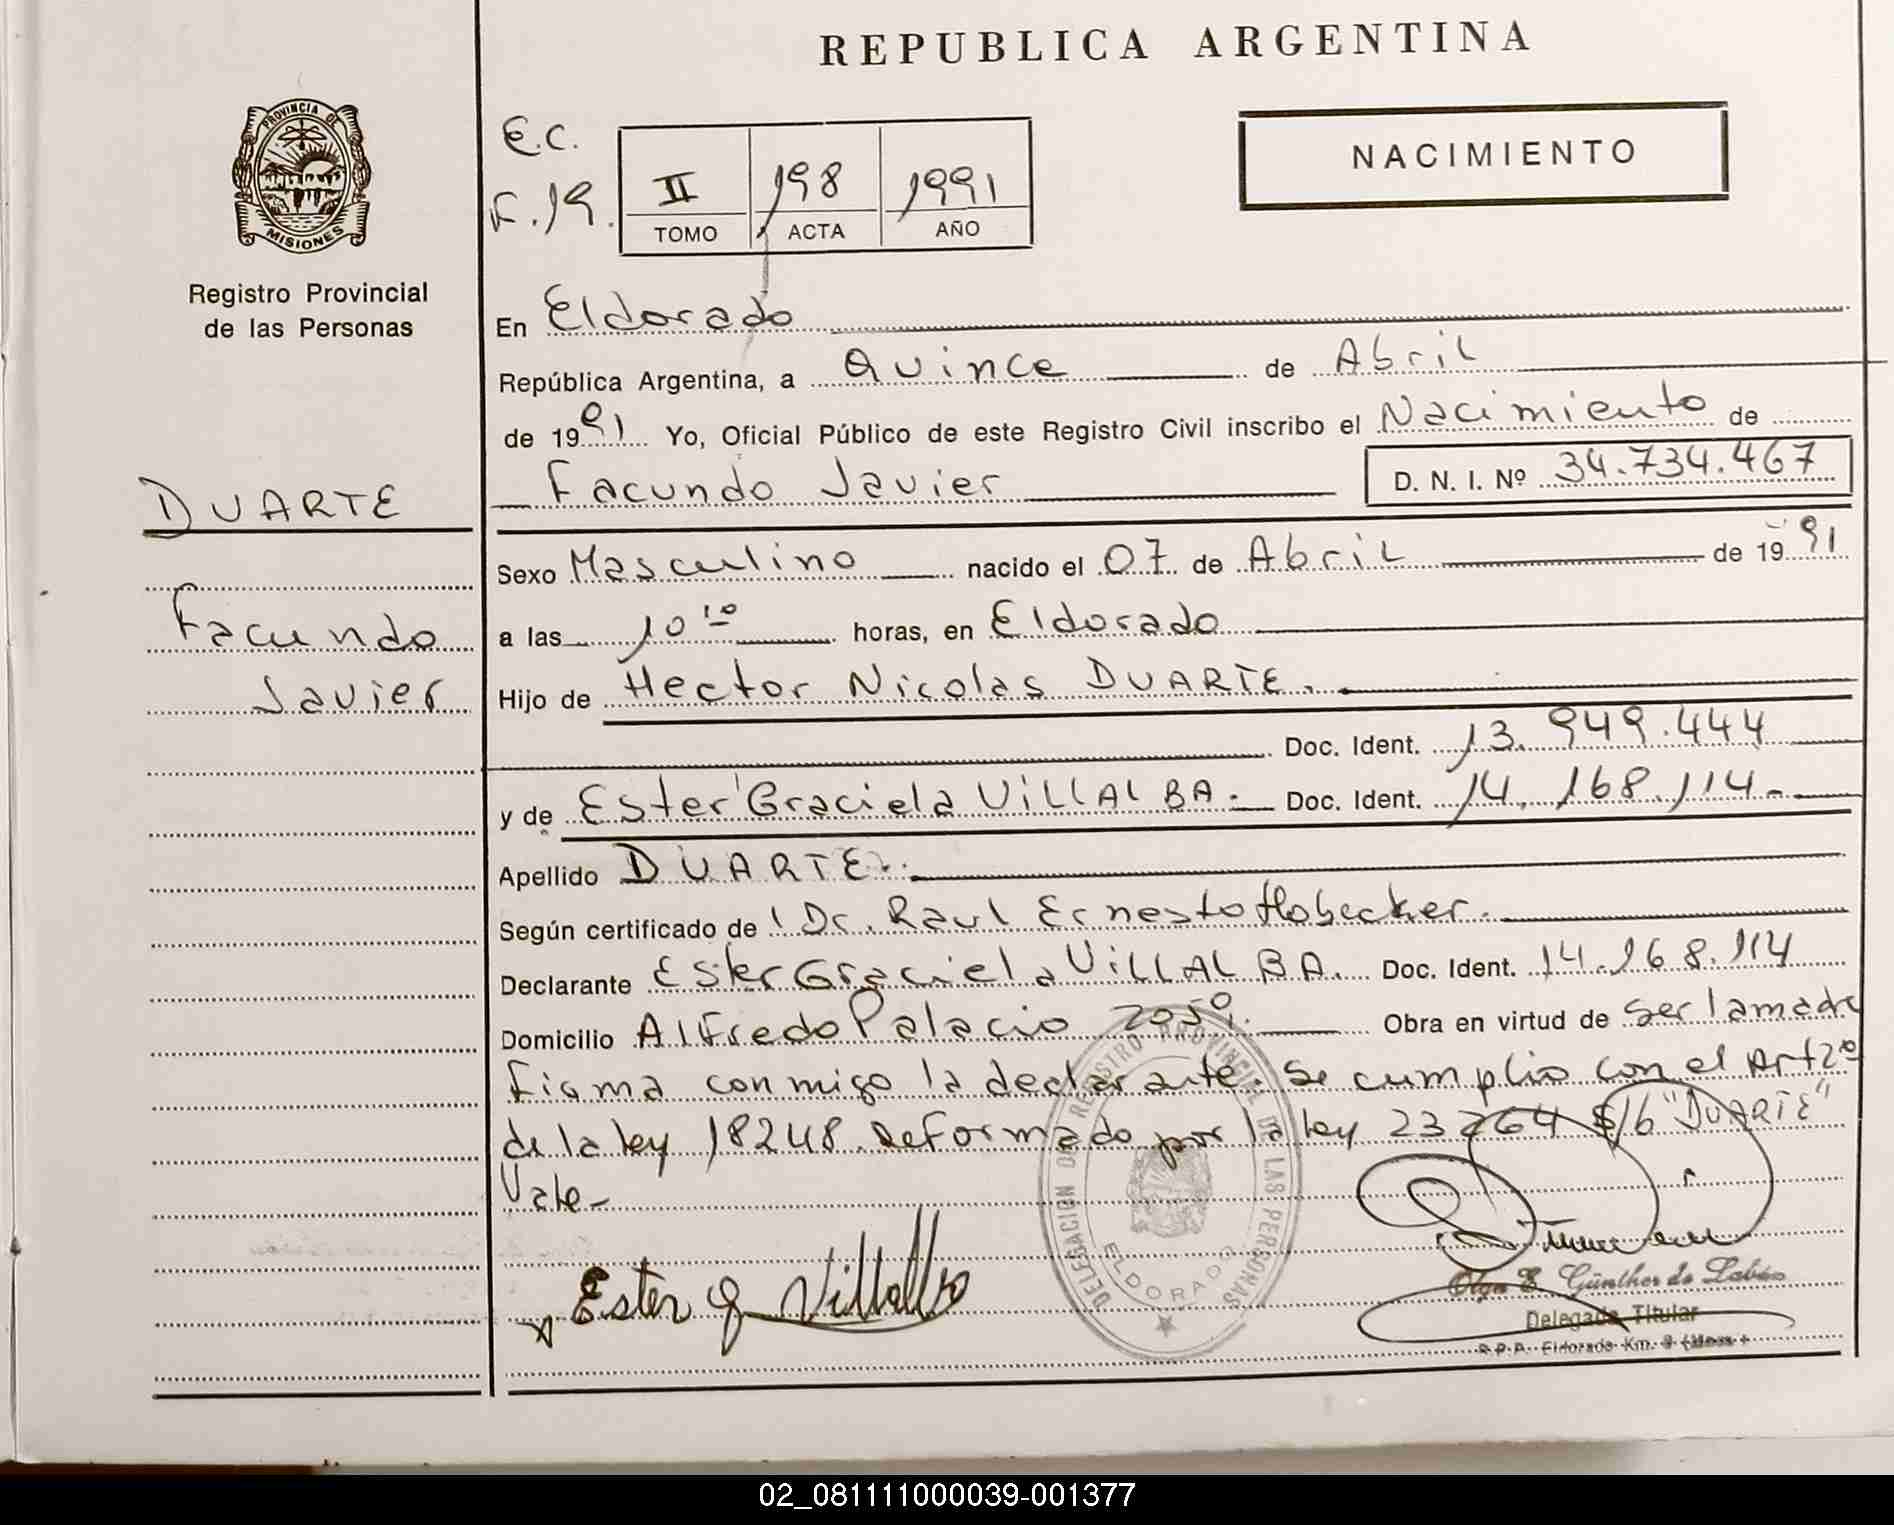 REPUBLICA ARGENTINA
PROVINCIA DE
MISIONES
Registro Provincial
de las Personas
E.C.
F.19.
II 198 1991
TOMO ACTA AÑO
NACIMIENTO
DUARTE
Facundo
Javier
En Eldorado
República Argentina, a Quince de Abril
de 1991 Yo, Oficial Público de este Registro Civil inscribo el Nacimiento de
Facundo Javier D. N. I. Nº 34.734.467
Sexo Masculino nacido el 07 de Abril de 1991
a las 10 10 horas, en Eldorado
Hijo de Hector Nicolas DUARTE.
Doc. Ident. 13.949.444
y de Ester Graciela VILLALBA.- Doc. Ident. 14.168.114.-
Apellido DUARTE.
Según certificado de Dr. Raul Ernesto Hobecker.
Declarante Ester Graciela VILLALBA. Doc. Ident. 14.168.114
Domicilio Alfredo Palacio Obra en virtud de ser la madre
Firma conmigo la declarante. Se cumplio con el Art 2º
de la ley 18248. Reformado por la ley 23264 S/b "DUARTE"
Vale-
DELEGACION DEL REGISTRO PROVINCIAL DE LAS PERSONAS
ELDORADO
Ester G Villalba
Olga E. Günther de
Delegada Titular
R.P.P. Eldorado Km. 9
02_081111000039-001377